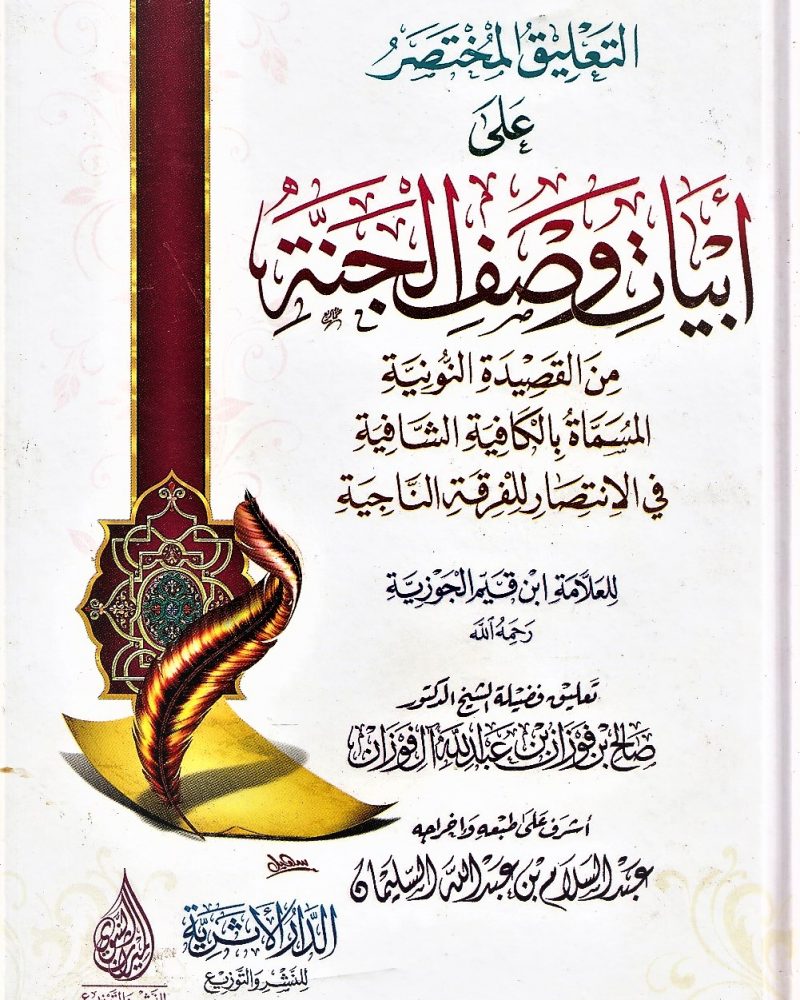 التَّعْلِيقُ المُخْتَصَرُ
عَلَى
أَبْيَاتِ وَصْفِ الْجَنَّةِ
مِنَ القَصِيدَةِ النُّونِيَّةِ
المُسَمَّاةُ بِالكَافِيَةِ الشَّافِيَةِ
فِي الِانْتِصَارِ لِلْفِرْقَةِ النَّاجِيَةِ
لِلعَلَّامَةِ ابْنِ قَيِّمِ الجَوْزِيَّةِ
رَحِمَهُ اللَّه
تعليق فضيلة الشيخ الدكتور
صالح بن فوزان بن عبدالله آل فوزان
أشرف على طبعه وإخراجه
عبد السلام بن عبد الله السليمان
الدار الأثرية
للنشر والتوزيع
الميراث النبوي
للنشر والتوزيع